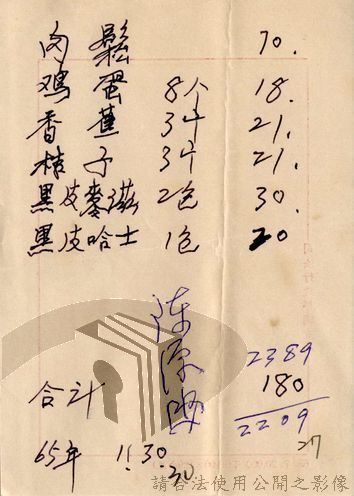 肉鬆 70.
鸡蛋 8个 18.
香蕉 3斤 21.
桔子 3斤 21.
黑皮麥滋 2包 30.
黑皮哈士 1包 20
2389
合计 180
2209
65年 11.30.
30
27
請合法使用公開之影像